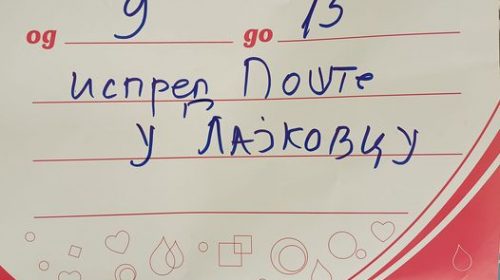 од 9 до 13
испред Поште
у Лајковцу